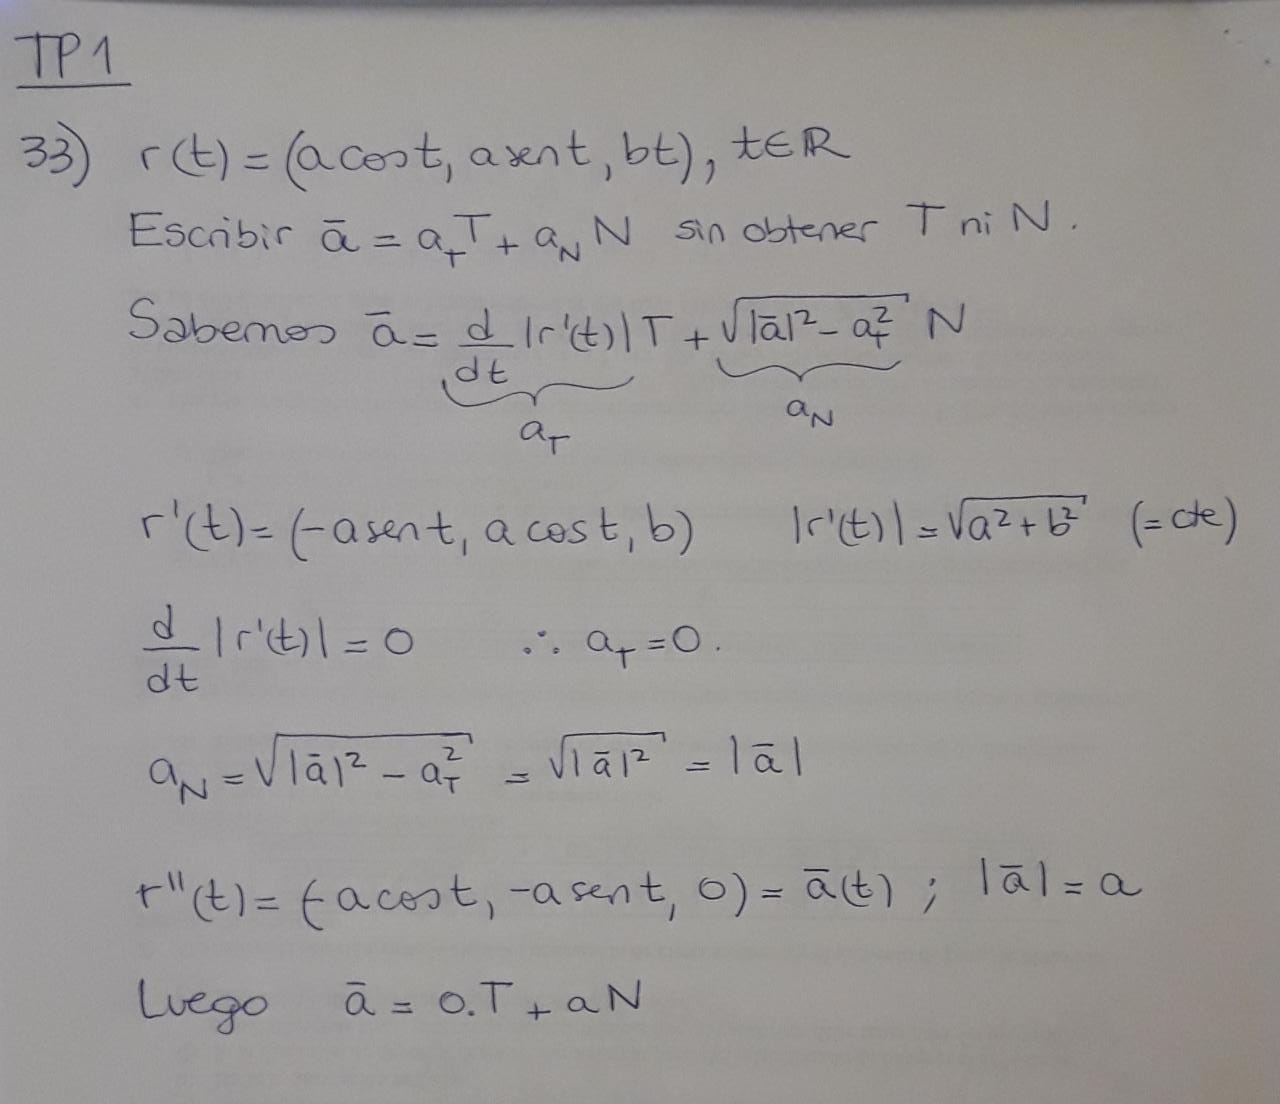 TP1
33) r(t) = (a cost, a sent, bt), t∈ℝ
Escribir ā = a_T T + a_N N sin obtener T ni N.
Sabemos ā = d/dt |r'(t)| T + √(|ā|² - a_T²) N
a_T a_N
r'(t) = (-a sent, a cost, b) |r'(t)| = √(a² + b²) (= cte)
d/dt |r'(t)| = 0 ∴ a_T = 0.
a_N = √(|ā|² - a_T²) = √(|ā|²) = |ā|
r''(t) = (-a cost, -a sent, 0) = ā(t) ; |ā| = a
Luego ā = 0.T + a N